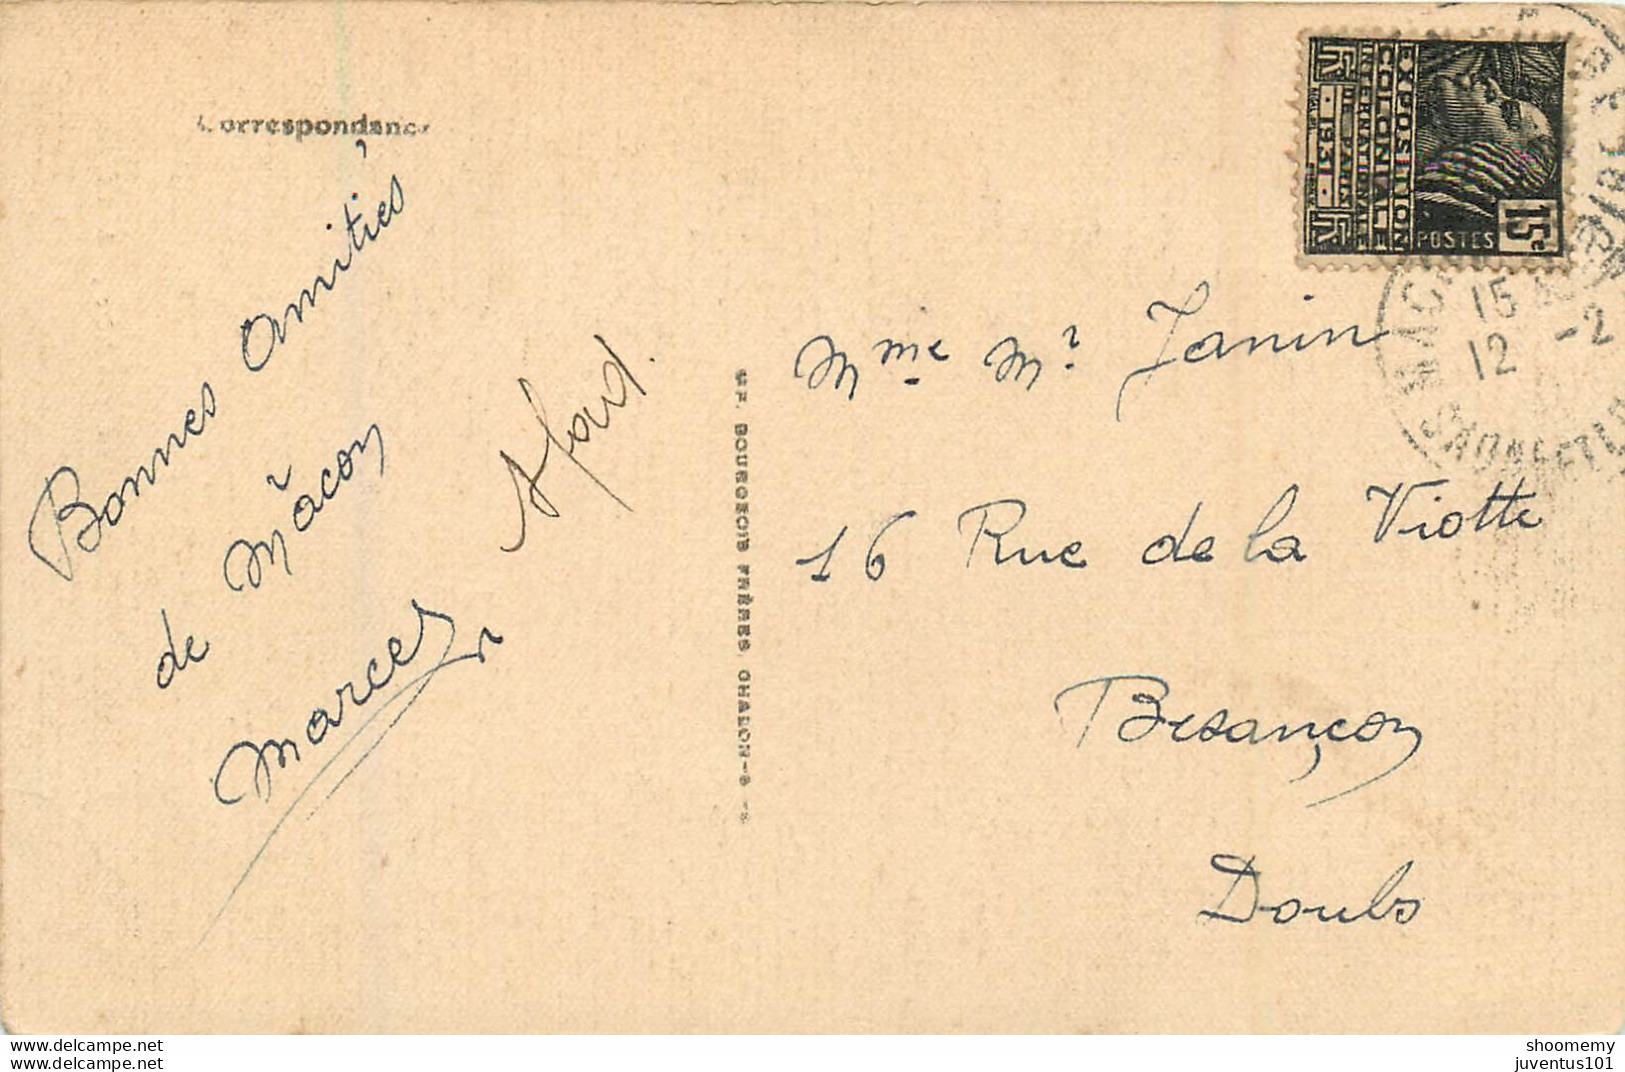 Correspondance
Bonnes Amitiés
de Mâcon
Marcel
EXPOSITION
COLONIALE
INTERNATIONALE
DE PARIS
1931
POSTES
15c
MACON
15
12 -2
SAONE ET L
Mme Mr Janin
16 Rue de la Viotte
Besançon
Doubs
BOURGEOIS FRÈRES, CHALON-S-S
shoomemy
juventus101
www.delcampe.net